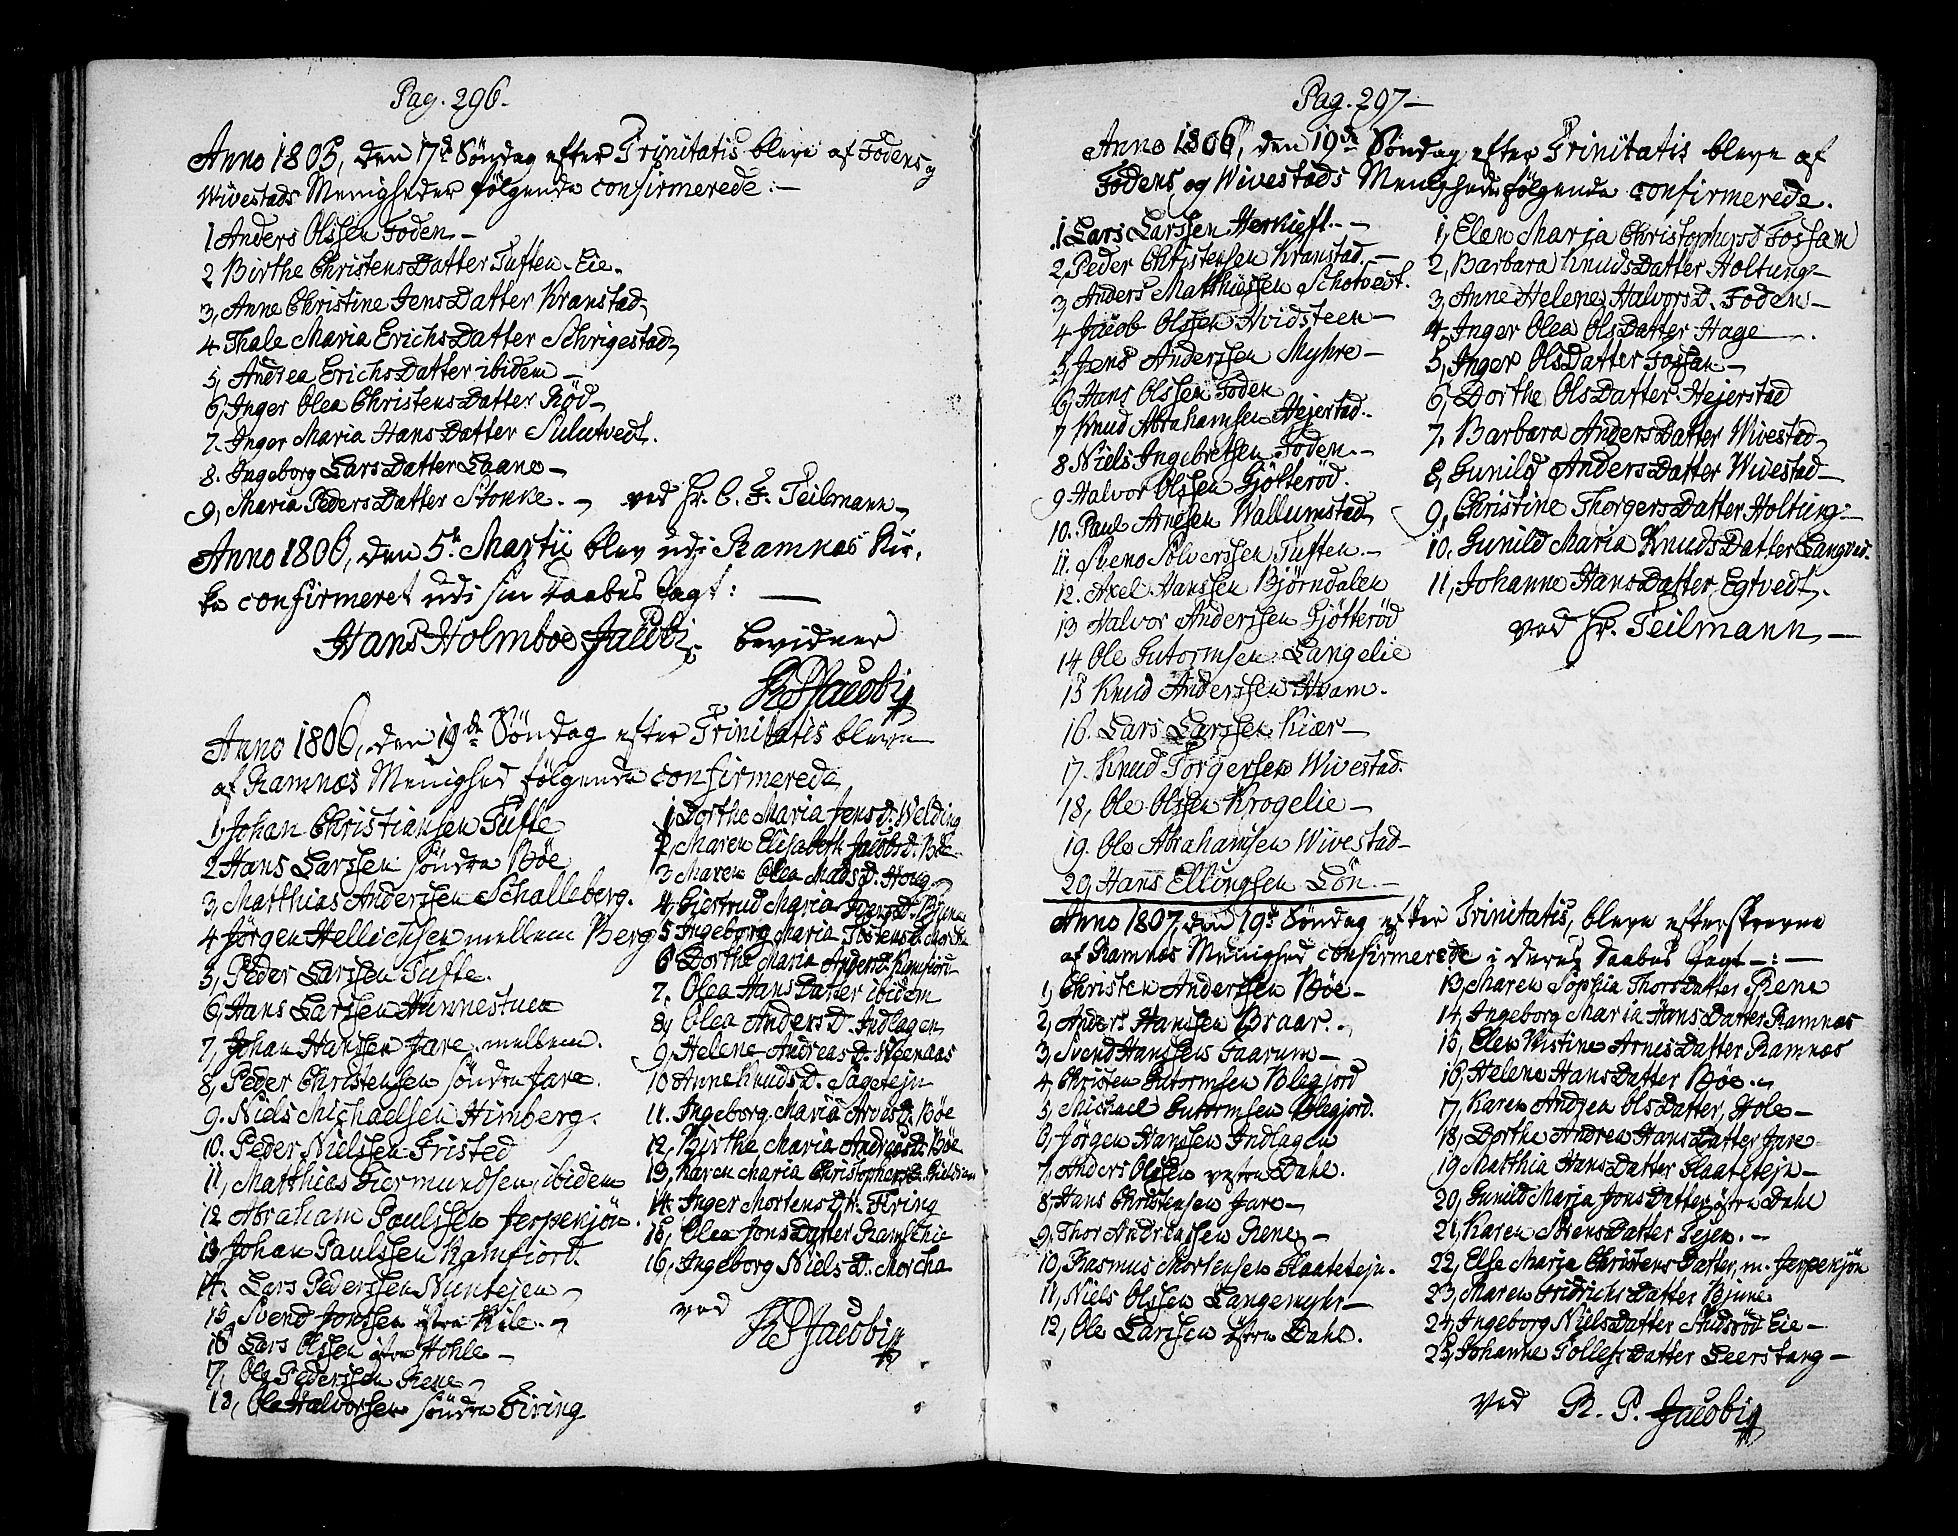 Pag. 296.
Anno 1805, den 17de Søndag efter Trinitatis bleve af Fodens og
Wivestads Menigheder følgende confirmerede:
1 Anders Olssen Foden
2 Birthe Christens Datter Tuften Eie.
3, Anne Christine Jens Datter Kranstad
4 Thale Maria Erichs Datter Schrigestad
5, Andrea Erichs Datter ibidem
6, Inger Olea Christens Datter Rød
7. Inger Maria Hans Datter Sulutvedt.
8. Ingeborg Lars Datter Laane
9, Maria Peders Datter Stokke. ved Hr. C. F. Teilmann
Anno 1806, den 5te Martii blev udi Ramnæs Kir-
ke confirmeret udi sin Daabes Pagt:
Hans Holmboe Jacobi, bevidner
RP Jacobi
Anno 1806, den 19de Søndag efter Trinitatis bleve
af Ramnæs Menighed følgende confirmerede
1, Johan Christiansen Tufte
2 Hans Larssen søndre Bøe
3, Matthias Anderssen Schalleberg.
4 Jørgen Hellichsen mellem Berg
5, Peder Larssen Tufte.
6, Hans Larssen Nunnestuen
7, Johan Hansen Jare mellem.
8, Peder Christensen søndre Jare.
9. Niels Michaelsen Himberg.
10. Peder Nielssen Fristed
11, Matthias Giermundsen, ibidem
12 Abraham Poulssen Jerpekjøn.
13 Johan Paulssen Ramfiord.
14. Lars Pederssen Nuntejen
15 Svend Jonssen østre Kile.
16 Lars Olssen østre Hohle
17, Ole Pederssen Rene
18, Ole Halvorsen søndre Firing
1 Dorthe Maria Jens D. Welding
2, Maren Elisabeth Jacobs D. Bøe
3 Maren Olea Mads D. Houg
4, Giertrud Maria Ivers D. Bjune
5 Ingeborg Maria Tostens D. Morcha
6 Dorthe Maria Anders D. Ramfiord
7. Olea Hans Datter ibidem
8, Olea Anders D. Indlagen
9, Helene Andreas D. Weenaas
10 Anne Knuds D. Sagetejn
11. Ingeborg Maria Arves D. Bøe
12, Birthe Maria Andreas D. Bøe
13, Karen Maria Christophers D.
14. Inger Mortens D. Firing
15, Olea Jons Datter Ramschie
16, Ingeborg Niels D. Morcha
ved
RP Jacobi
Pag. 297
Anno 1806, den 19de Søndag efter Trinitatis bleve af
Fodens og Wivestads Menigheder følgende confirmerede.
1 Lars Larssen Herkieft.
2, Peder Christensen Kranstad.
3, Anders Matthiessen Schotvedt.
4 Jacob Olssen Hvidsteen
5, Jens Anderssen Myhre
6, Hans Olssen Foden
7 Knud Abrahamsen Hejerstad.
8 Niels Ingebretsen Foden.
9 Halvor Olssen Gjøtterød.
10. Paul Arnesen Wallumstad
11. Sveno Solverssen Tuften.
12. Axel Hanssen Bjørndalen
13 Halvor Anderssen Gjøtterød
14 Ole Gutormsen Langelie
15 Knud Anderssen Hvam.
16. Lars Larssen Kiær
17. Knud Torgersen Wivestad.
18, Ole Olssen Krogelie
19. Ole Abrahamsen Wivestad
20, Hans Ellingsen Løn.
1, Elen Marja Christophers D Fossan
2, Barbara Knuds Datter Holtung
3, Anne Helene Halvors D. Foden
4, Inger Olea Ols Datter Hage
5, Inger Ols Datter Fossan
6, Dorthe Ols Datter Hejerstad
7. Barbara Anders Datter Wivestad
8, Gunild Anders Datter Wivestad
9, Christine Thorgers Datter Holtung
10. Gunild Maria Knuds Datter Langved.
11, Johanne Hans Datter Egtvedt.
ved Hr. Teilmann
Anno 1807, den 19de Søndag efter Trinitatis, bleve efterskrevne
af Ramnæs Menighed confirmerede i deres Daabes Pagt
1, Christen Anderssen Bøe
2, Anders Hanssen Braar.
3, Svend Hanssen Faarum
4, Christen Gutormsen Blegjord
5, Michael Gutormsen Blegjord.
6, Jørgen Hanssen Indlagen
7, Anders Olssen vestre Dahl.
8, Hans Christensen Jare
9, Thor Andreassen Rene
10, Rasmus Mortensen Klaatetejn.
11, Niels Olssen Langemyhr
12, Ole Larssen østre Dahl.
13, Maren Sophia Thors Datter Rene
14, Ingeborg Maria Hans Datter Ramnæs
15, Elen Kistine Arnes Datter Ramnæs
16, Helene Hans Datter Bøe
17, Karen Andrea Ols Datter, Hole
18, Dorthe Andrea Hans Datter Jare
19 Matthia Hans Datter Klaatetejn
20, Gunild Marja Jons Datter østre Dahl
21, Karen Stens Datter Tejen.
22, Else Marja Christens Datter, m. Jerpekjøn
23, Maren Fridrichs Datter Bjune
24, Ingeborg Niels Datter Sudsrød Eie
25, Johanne Tollefs Datter Leerstang
Ved R. P. Jacobi